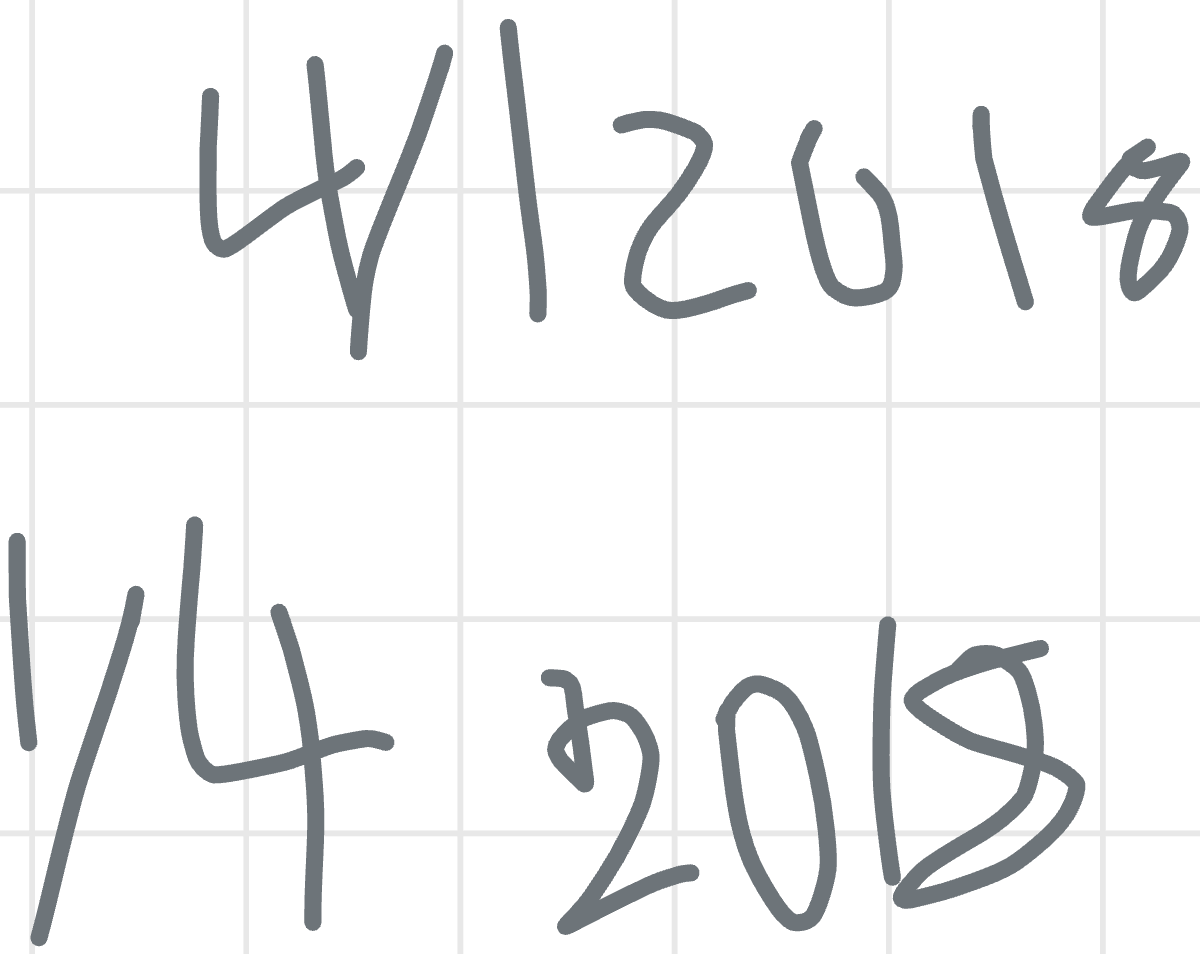 4/1 2018
1/4 2018